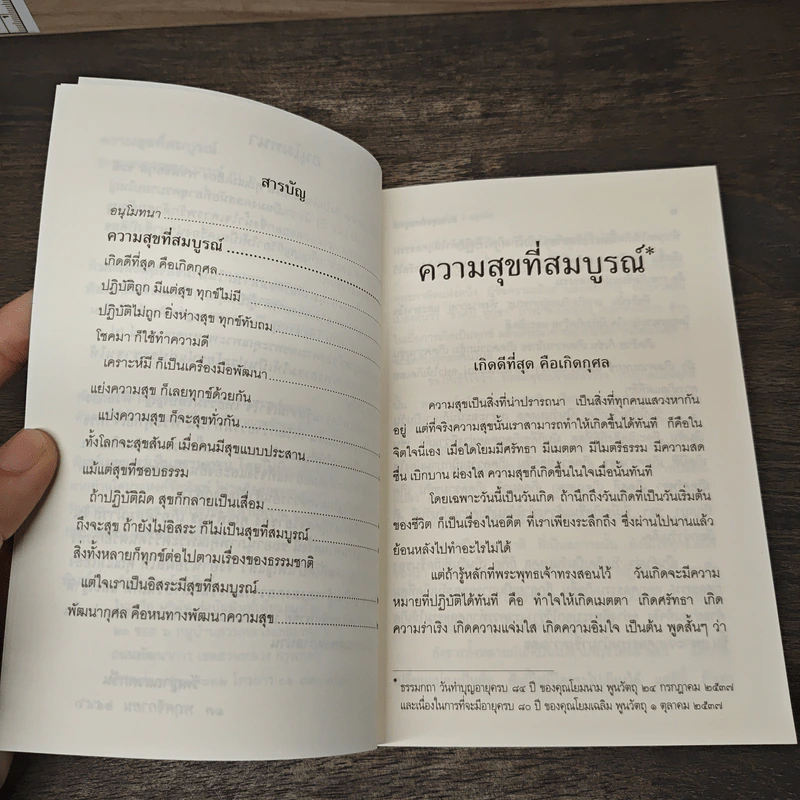 สารบัญ
อนุโมทนา
ความสุขที่สมบูรณ์
เกิดดีที่สุด คือเกิดกุศล
ปฏิบัติถูก มีแต่สุข ทุกข์ไม่มี
ปฏิบัติไม่ถูก ยิ่งห่างสุข ทุกข์ทับถม
โชคมา ก็ใช้ทำความดี
เคราะห์มี ก็เป็นเครื่องมือพัฒนา
แย่งความสุข ก็เลยทุกข์ด้วยกัน
แบ่งความสุข ก็จะสุขทั่วกัน
ทั้งโลกจะสุขสันต์ เมื่อคนมีสุขแบบประสาน
แม้แต่สุขที่ชอบธรรม
ถ้าปฏิบัติผิด สุขก็กลายเป็นเสื่อม
ถึงจะสุข ถ้ายังไม่อิสระ ก็ไม่เป็นสุขที่สมบูรณ์
สิ่งทั้งหลายก็ทุกข์ต่อไปตามเรื่องของธรรมชาติ
แต่ใจเราเป็นอิสระมีสุขที่สมบูรณ์
พัฒนากุศล คือหนทางพัฒนาความสุข
ความสุขที่สมบูรณ์*
เกิดดีที่สุด คือเกิดกุศล
ความสุขเป็นสิ่งที่น่าปรารถนา เป็นสิ่งที่ทุกคนแสวงหากัน
อยู่ แต่ที่จริงความสุขนั้นเราสามารถทำให้เกิดขึ้นได้ทันที ก็คือใน
จิตใจนี่เอง เมื่อใดโยมมีศรัทธา มีเมตตา มีไมตรีธรรม มีความสด
ชื่น เบิกบาน ผ่องใส ความสุขก็เกิดขึ้นในใจเมื่อนั้นทันที
โดยเฉพาะวันนี้เป็นวันเกิด ถ้านึกถึงวันเกิดที่เป็นวันเริ่มต้น
ของชีวิต ก็เป็นเรื่องในอดีต ที่เราเพียงระลึกถึง ซึ่งผ่านไปนานแล้ว
ย้อนหลังไปทำอะไรไม่ได้
แต่ถ้ารู้หลักที่พระพุทธเจ้าทรงสอนไว้ วันเกิดจะมีความ
หมายที่ปฏิบัติได้ทันที คือ ทำใจให้เกิดเมตตา เกิดศรัทธา เกิด
ความร่าเริง เกิดความแจ่มใส เกิดความอิ่มใจ เป็นต้น พูดสั้นๆ ว่า
* ธรรมกถา วันทำบุญอายุครบ ๘๔ ปี ของคุณโยมนาม พูนวัตถุ ๒๔ กรกฎาคม ๒๕๓๗
และเนื่องในการที่จะมีอายุครบ ๘๐ ปี ของคุณโยมเฉลิม พูนวัตถุ ๑ ตุลาคม ๒๕๓๗